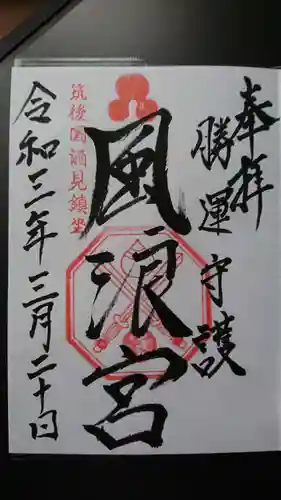 奉拝
勝運守護
風浪宮
筑後国酒見鎮坐
令和三年三月二十日